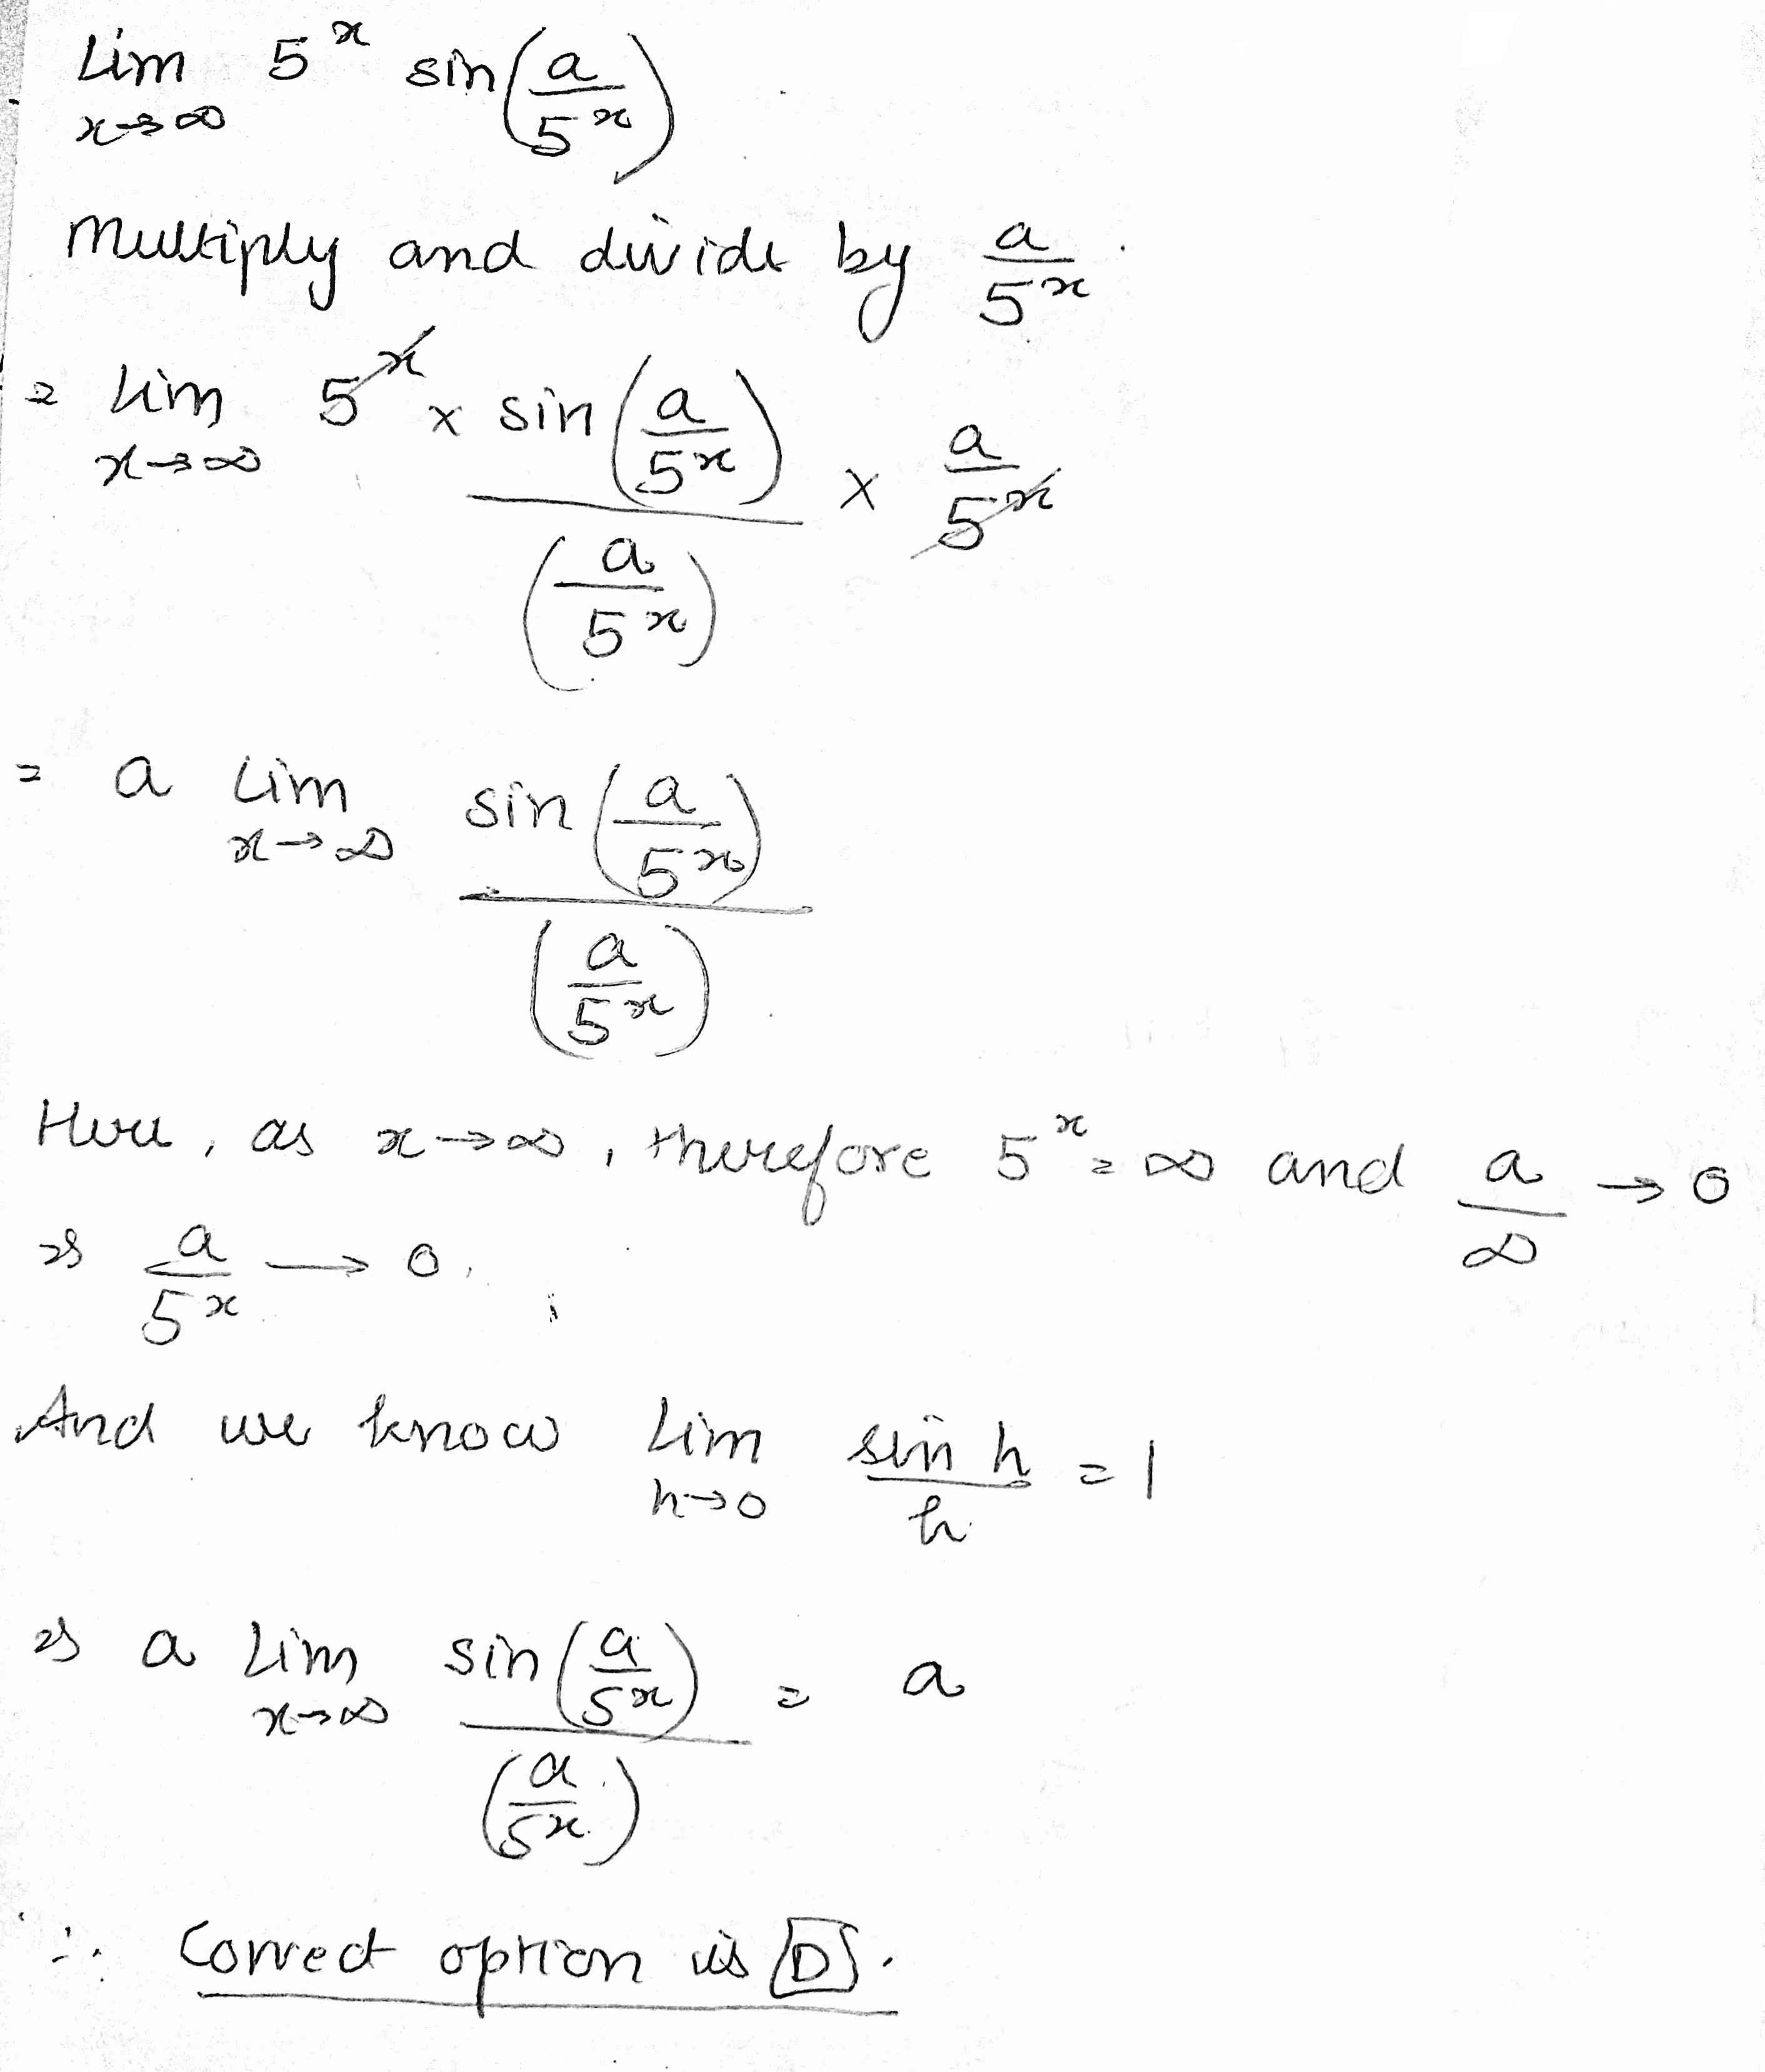 Lim 5^x sin(a/5^x)
x→∞
Multiply and divide by a/5^x.
= lim 5^x × sin(a/5^x)/(a/5^x) × a/5^x
x→∞
= a Lim sin(a/5^x)/(a/5^x)
x→∞
Here, as x→∞, therefore 5^x = ∞ and a/∞ → 0
⇒ a/5^x → 0.
And we know Lim sin h/h = 1
h→0
⇒ a Lim sin(a/5^x)/(a/5^x) = a
x→∞
∴ Correct option is [D].